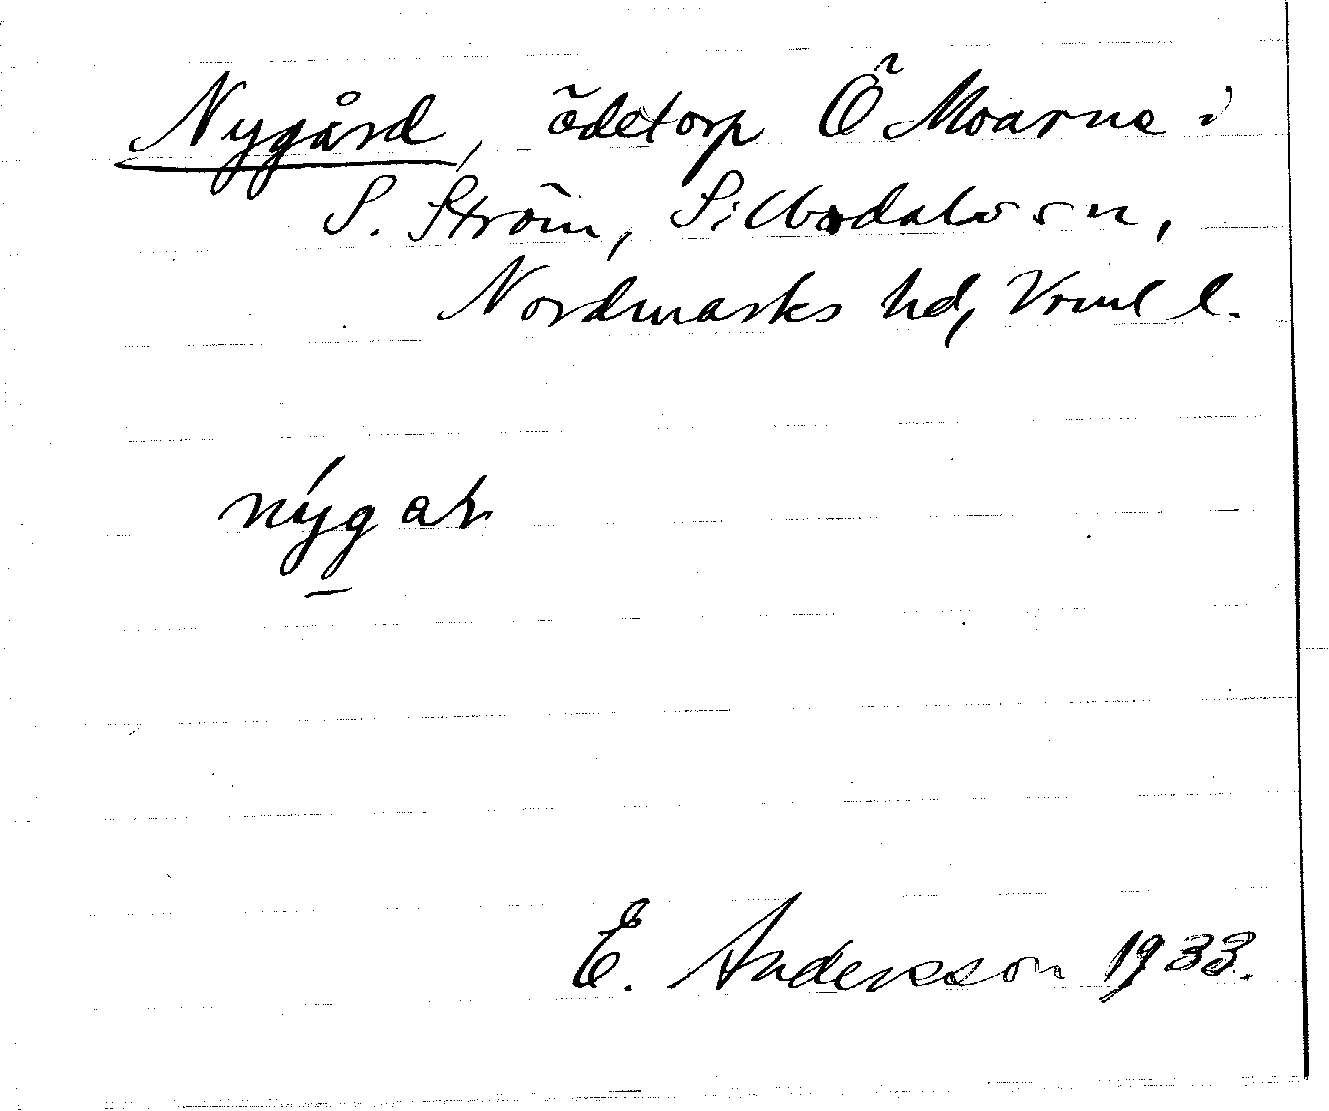 Nygård, ödetorp Ö Moarne i
S. Ström, Silbodals sn,
Nordmarks hd, Vrml l.
nýgaɽ
E. Andersson 1933.